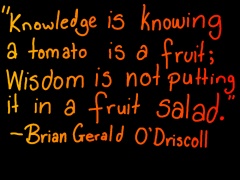 "Knowledge is knowing
a tomato is a fruit;
Wisdom is not putting
it in a fruit salad."
~Brian Gerald O'Driscoll